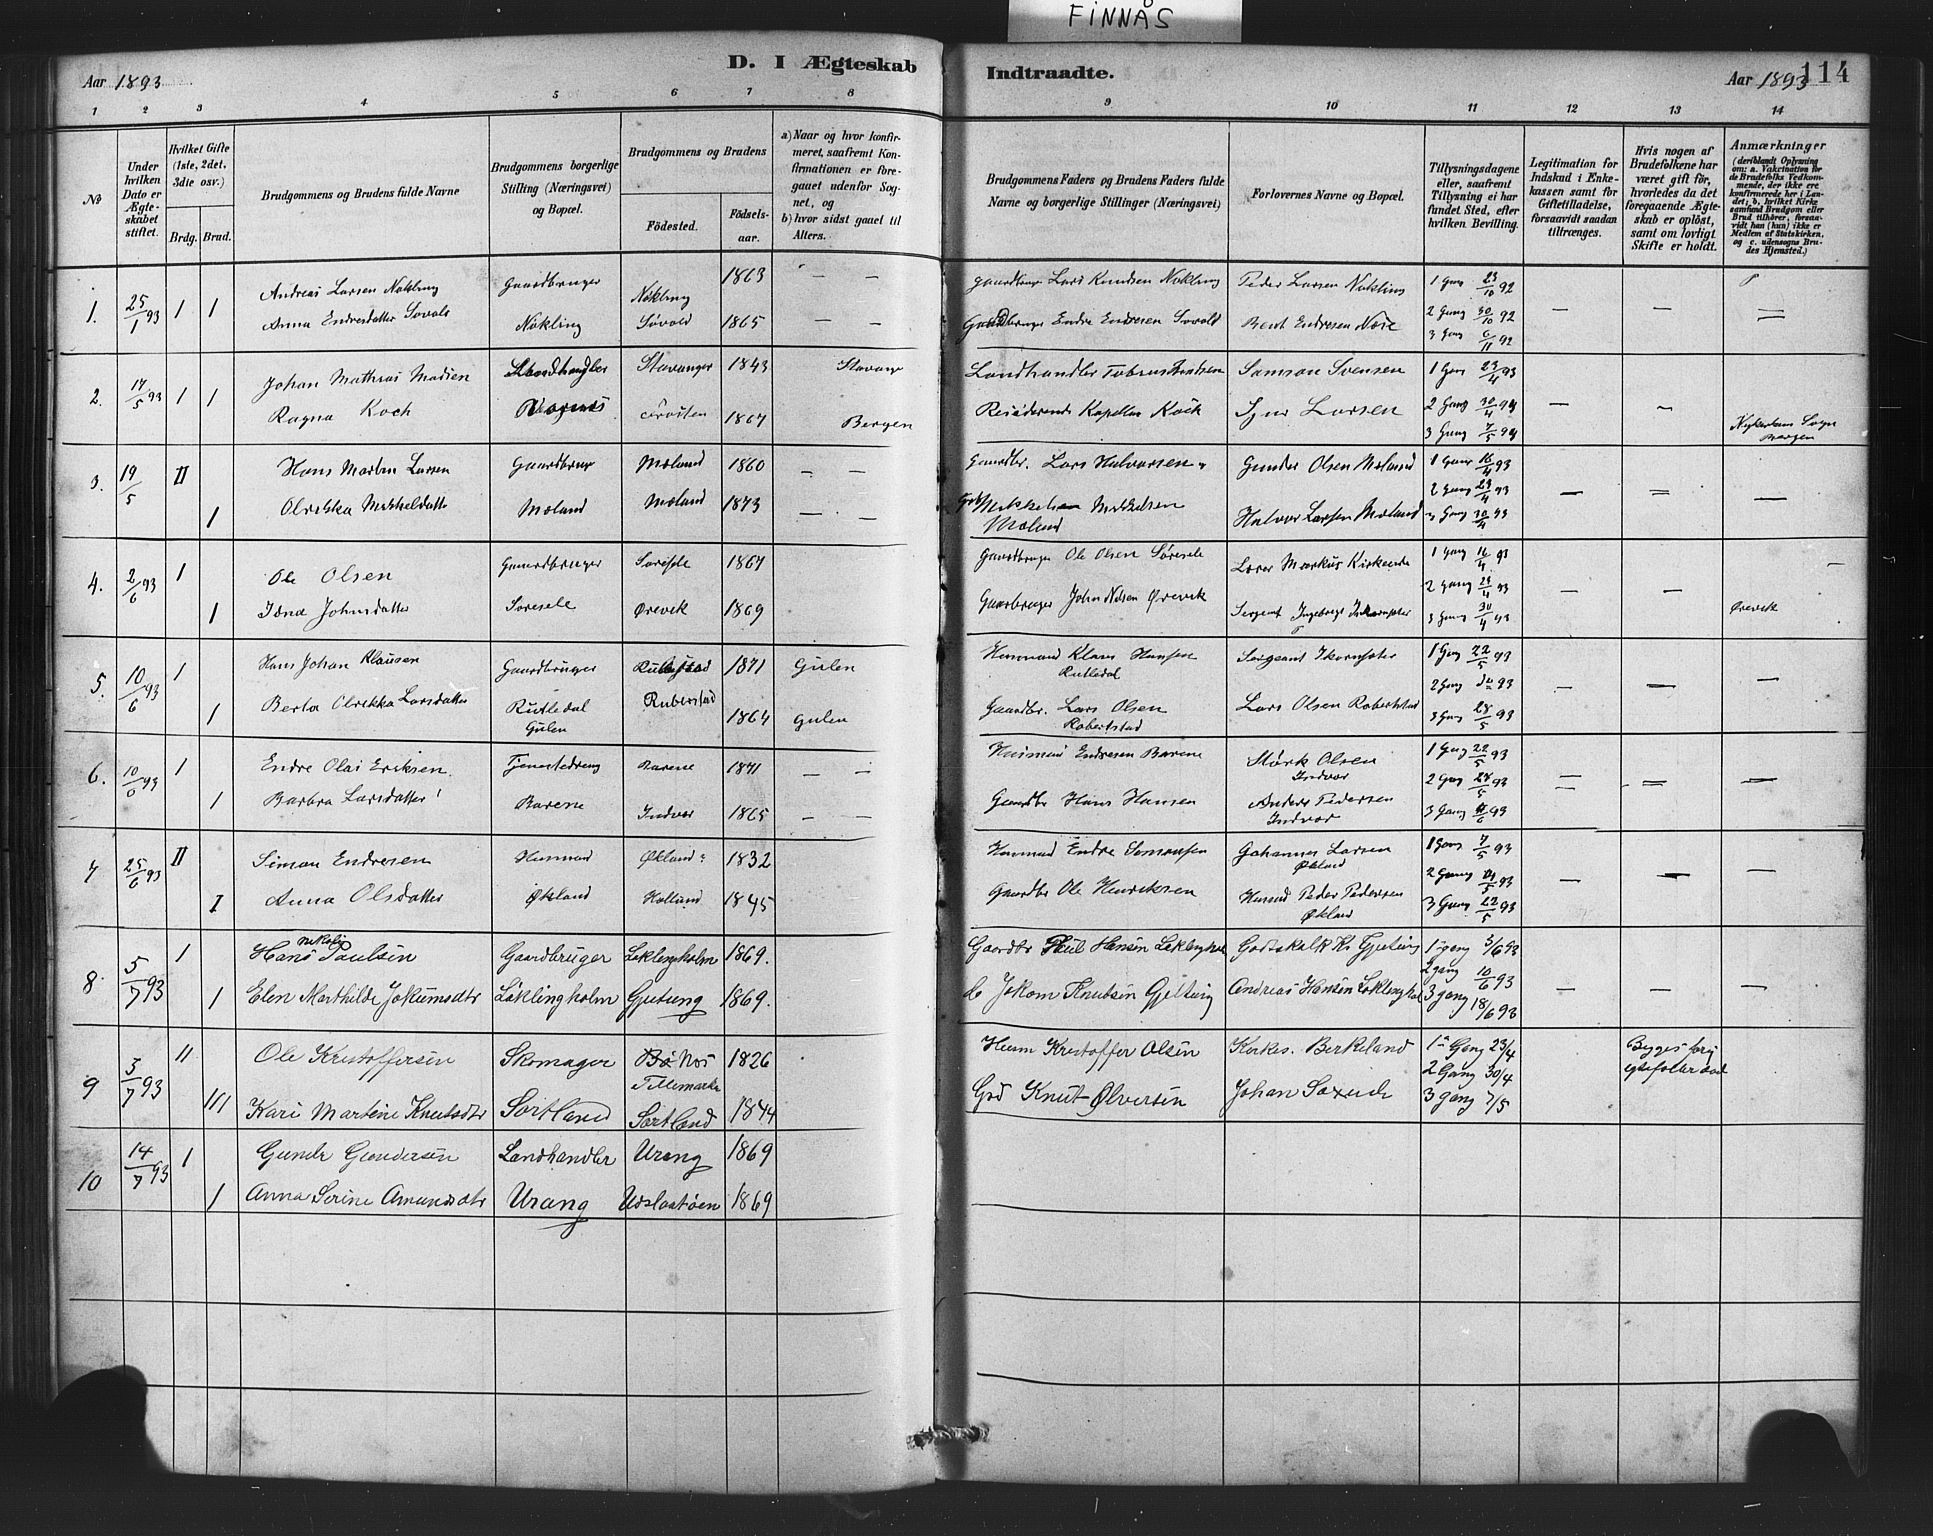 FINNÅS
Aar 1893
D. I Ægteskab
Indtraadte.
Aar 1893
114
1 2 3 4 5 6 7 8 9 10 11 12 13 14
No
Under hvilken Dato er Ægteskabet stiftet.
Hvilket Gifte (1ste, 2det, 3die osv.)
Brdg. Brud.
Brudgommens og Brudens fulde Navne
Brudgommens borgerlige Stilling (Næringsvei) og Bopæl.
Brudgommens og Brudens
Fødested.
Fødselsaar.
a) Naar og hvor konfirmeret, saafremt Konfirmationen er foregaaet udenfor Sognet, og
b) hvor sidst gaaet til Alters.
Brudgommens Faders og Brudens Faders fulde Navne og borgerlige Stillinger (Næringsvei)
Forlovernes Navne og Bopæl.
Tillysningsdagene eller, saafremt Tillysning ei har fundet Sted, efter hvilken Bevilling.
Legitimation for Indskud i Enkekassen samt for Giftetilladelse, forsaavidt saadan tiltrænges.
Hvis nogen af Brudefolkene har været gift før, hvorledes da det foregaaende Ægteskab er opløst, samt om lovligt Skifte er holdt.
Anmærkninger
(deriblandt Oplysning om: a. Vakcination for de Brudefolks Vedkommende, der ikke ere konfirmerede her i Landet; b. hvilket Kirkesamfund Brudgom eller Brud tilhører, forsaavidt han (hun) ikke er Medlem af Statskirken, og c. udensogns Brudes Hjemsted.)
1. 25/1 93 1 1 Andreas Larsen Nøkling Gaardbruger Nøkling 1863 — — Gaardbruger Lars Knudsen Nøkling Peder Larsen Nøkling 1 Gang 23/10 92
Anna Endresdatter Søvold Nøkling Søvold 1865 — — Gaardbruger Endre Endresen Søvold Bent Endresen 2 Gang 30/10 92 — —
3 Gang 6/11 92
2. 17/5 93 1 1 Johan Mathias Madsen Landhandler Stavanger 1843 Stavanger Landhandler Samson Svensen 1 Gang 23/4 93
Ragna Koch 1867 Bergen Residerende Kapellan Koch Larsen 2 Gang 30/4 94 — ~
3 Gang 7/5 94 Nykirkens Sogn Bergen
3. 19/5 II Hans Martin Larsen Gaardbruger Moland 1860 — — Gaardbr. Lars Halvorsen Gunder Olsen Moland 1 Gang 16/4 93
1 Olrikka Mikkeldatter Moland Moland 1873 — — Mikkelsen Moland Halvor Larsen Moland 2 Gang 23/4 93 — = —
3 Gang 30/4 93
4. 2/6 93 1 Ole Olsen Gaardbruger Søresele 1867 Gaardbruger Ole Olsen Søresele Lærer Markus 1 Gang 16/4 93
1 Johnsdatter Søresele Ørevik 1869 Gaardbruger John Nilsen Ørevik Sergent 2 Gang 23/4 93 — — Ørevik
3 Gang 30/4 93
5. 10/6 93 1 Hans Johan Klausen Gaardbruger 1871 Gulen Husmand Klaus Hansen Rutledal Sergeant 1 Gang 22/5 93
1 Berta Olrikka Larsdatter Rutledal Gulen Ruberstad 1864 Gulen Gaardbr. Lars Olsen Robertstad Lars Olsen Robertstad 2 Gang do 93 — — —
3 Gang 28/5 93
6. 10/6 93 1 Endre Olai Eriksen Tjenestedreng Barene 1871 — — Husmand Endresen Barene Størk Olsen Indvær 1 Gang 22/5 93
1 Barbra Larsdatter Barene Indvær 1865 — — Gaardbr Hans Hansen Anders Pedersen Indvær 2 Gang 28/5 93 = = —
3 Gang 93
7 25/6 93 II Simon Endresen Husmand Økland 1832 Husmand Endre Simonsen Johannes Larsen Økland 1 Gang 7/5 93
I Anna Olsdatter Økland Hollund 1845 Gaardbr Ole Henriksen Husmd Peder Pedersen Økland 2 Gang 14/5 93 — — —
3 Gang 22/5 93
8 5/7 93 1 Hans Nikolai Paulsen Gaardbruger Løklingholm 1869. Gaardbr Poul Hansen Løklingholm Godtskalk Kr Gjetung 1 gang 3/6 93
1 Elen Marthilde Jokumsdtr Løklingholm Gjetung 1869. do Jokom Knutsen Gjetung Andreas Hansen Løklinghol 2 gang 10/6 93 — — —
3 gang 18/6 93
9 3/7 93 II Ole Kristoffersen Skomager Bø Tillemarke 1826 Husm Kristoffer Olsen Kirkes. Birkeland 1 Gang 23/4 Begges forrige
III Kari Martine Knutsdtr Sørtland Sørtland 1844 Grd Knut Ølversen Johan 2 Gang 30/4
3 gang 7/5
10 14/7 93 1 Gunder Gundersen Landhandler Urang 1869
1 Anna Serine Amundsdtr Urang 1869